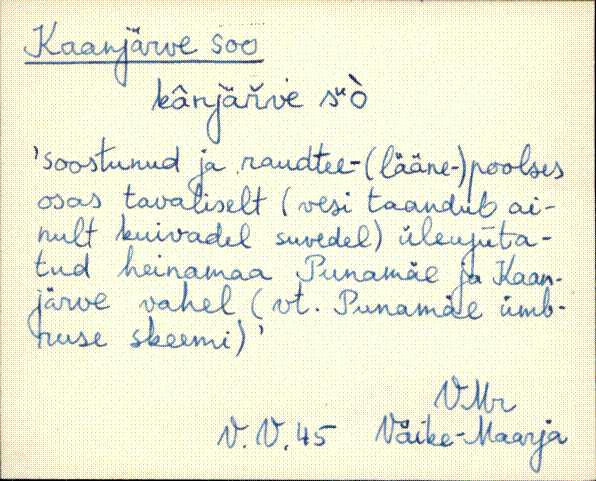 Kaanjärve soo
kânjäřve sᵘò
'soostunud ja raudtee-(lääne-)poolses
osas tavaliselt (vesi taandub ai-
nult kuivadel suvedel) üleujuta-
tud heinamaa Punamäe ja Kaan-
järve vahel (vt. Punamäe ümb-
ruse skeemi)'
VMr
V.V.45 Väike-Maarja